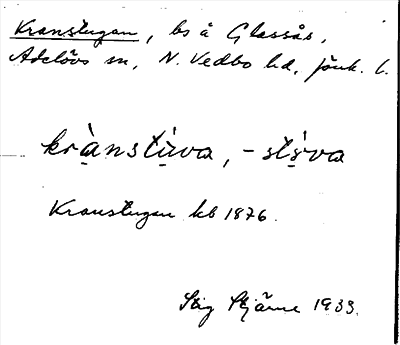 Kranstugan, bs å Glassås,
Adelövs sn, N. Vedbo hd, jönk. l.
krànstùva, -stùva
Kranstugan kb 1876.
Stig Stjärne 1933.